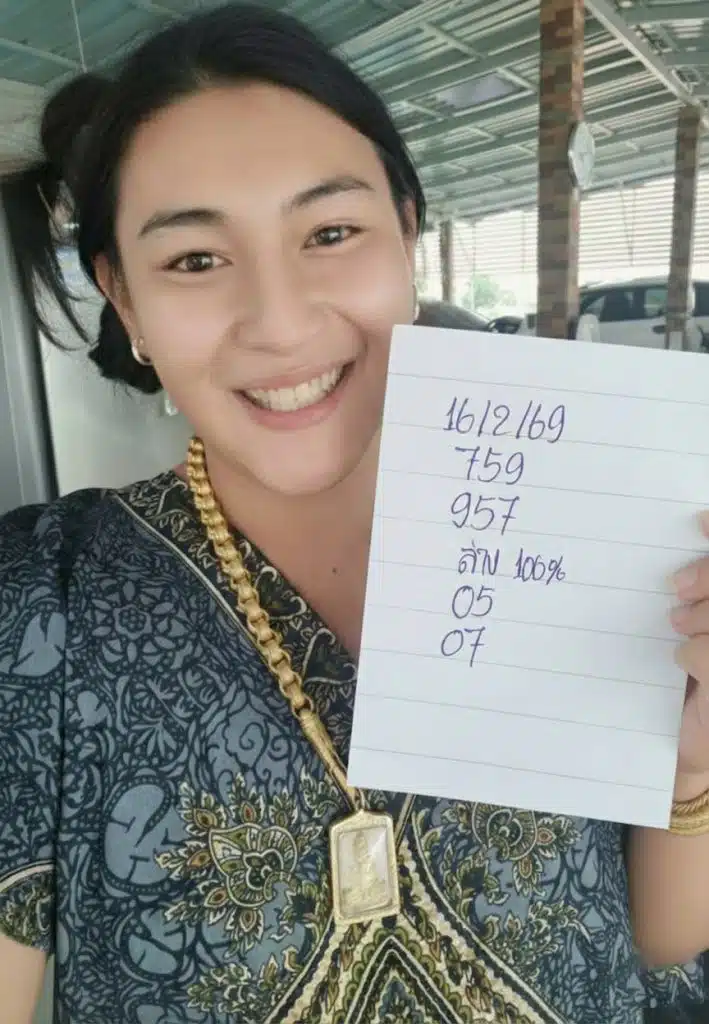 16/2/69
759
957
ล่าง 100%
05
07